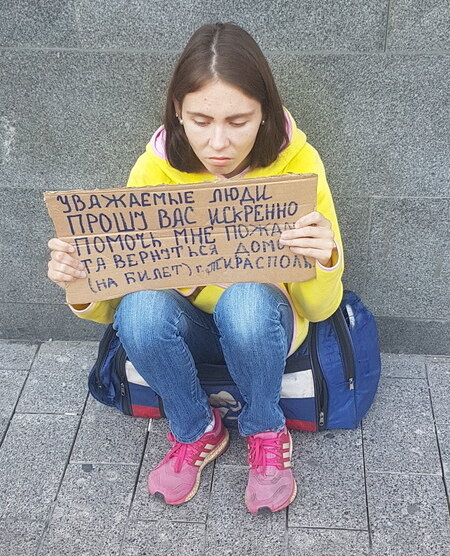 УВАЖАЕМЫЕ ЛЮДИ
ПРОШУ ВАС ИСКРЕННО
ПОМОЧЬ МНЕ ПОЖАЛ
ТА ВЕРНУТЬСЯ ДОМОЙ
(НА БИЛЕТ) г. ТИРАСПОЛЬ